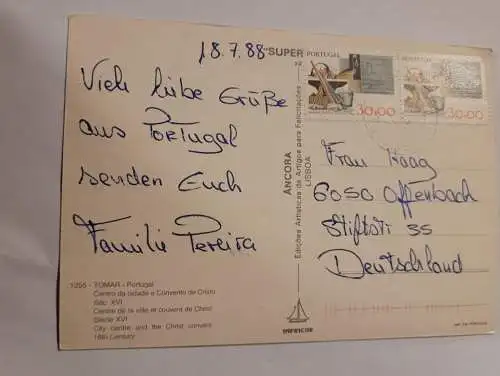 18.7.88
"SUPER"
PORTUGAL
30$00
PORTUGAL
30$00
Viele liebe Grüße
aus Portugal
senden Euch
Familie Pereira
ÂNCORA
LISBOA
Edições Artísticas de Artigos para Felicitações
Frau Haag
6050 Offenbach
Stiftstr 35
Deutschland
1255 - TOMAR - Portugal
Centro da cidade e Convento de Cristo
Séc. XVI
Centre de la ville et couvent de Christ
Siècle XVI
City centre and the Christ convent
16th Century